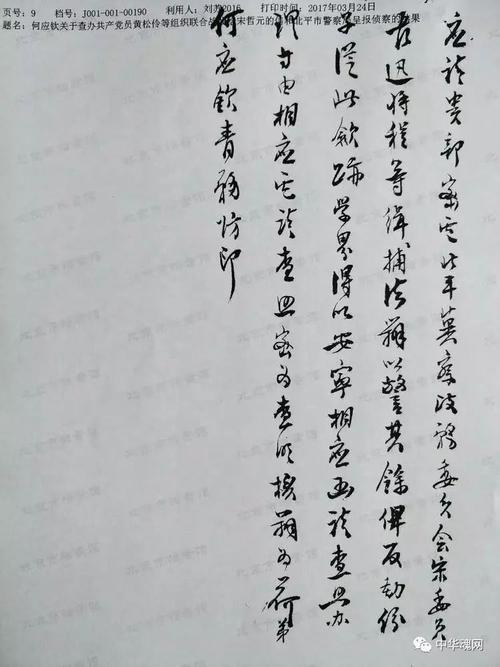 页号：9 档号：J001-001-00190 利用人：刘苏2016 打印时间：2017年03月24日
题名：何应钦关于查办共产党员黄松伶等组织联合战 宋哲元的 和北平市警察 呈报侦察的 果
应请贵部密电北平冀察政务委员会宋委员
长迅将程等缉捕法办以警其余俾反动份
子从此敛迹学界得以安宁相应函请查照办
理 由相应电请查照密为查明核办为荷弟
何应钦青 印
中华魂网